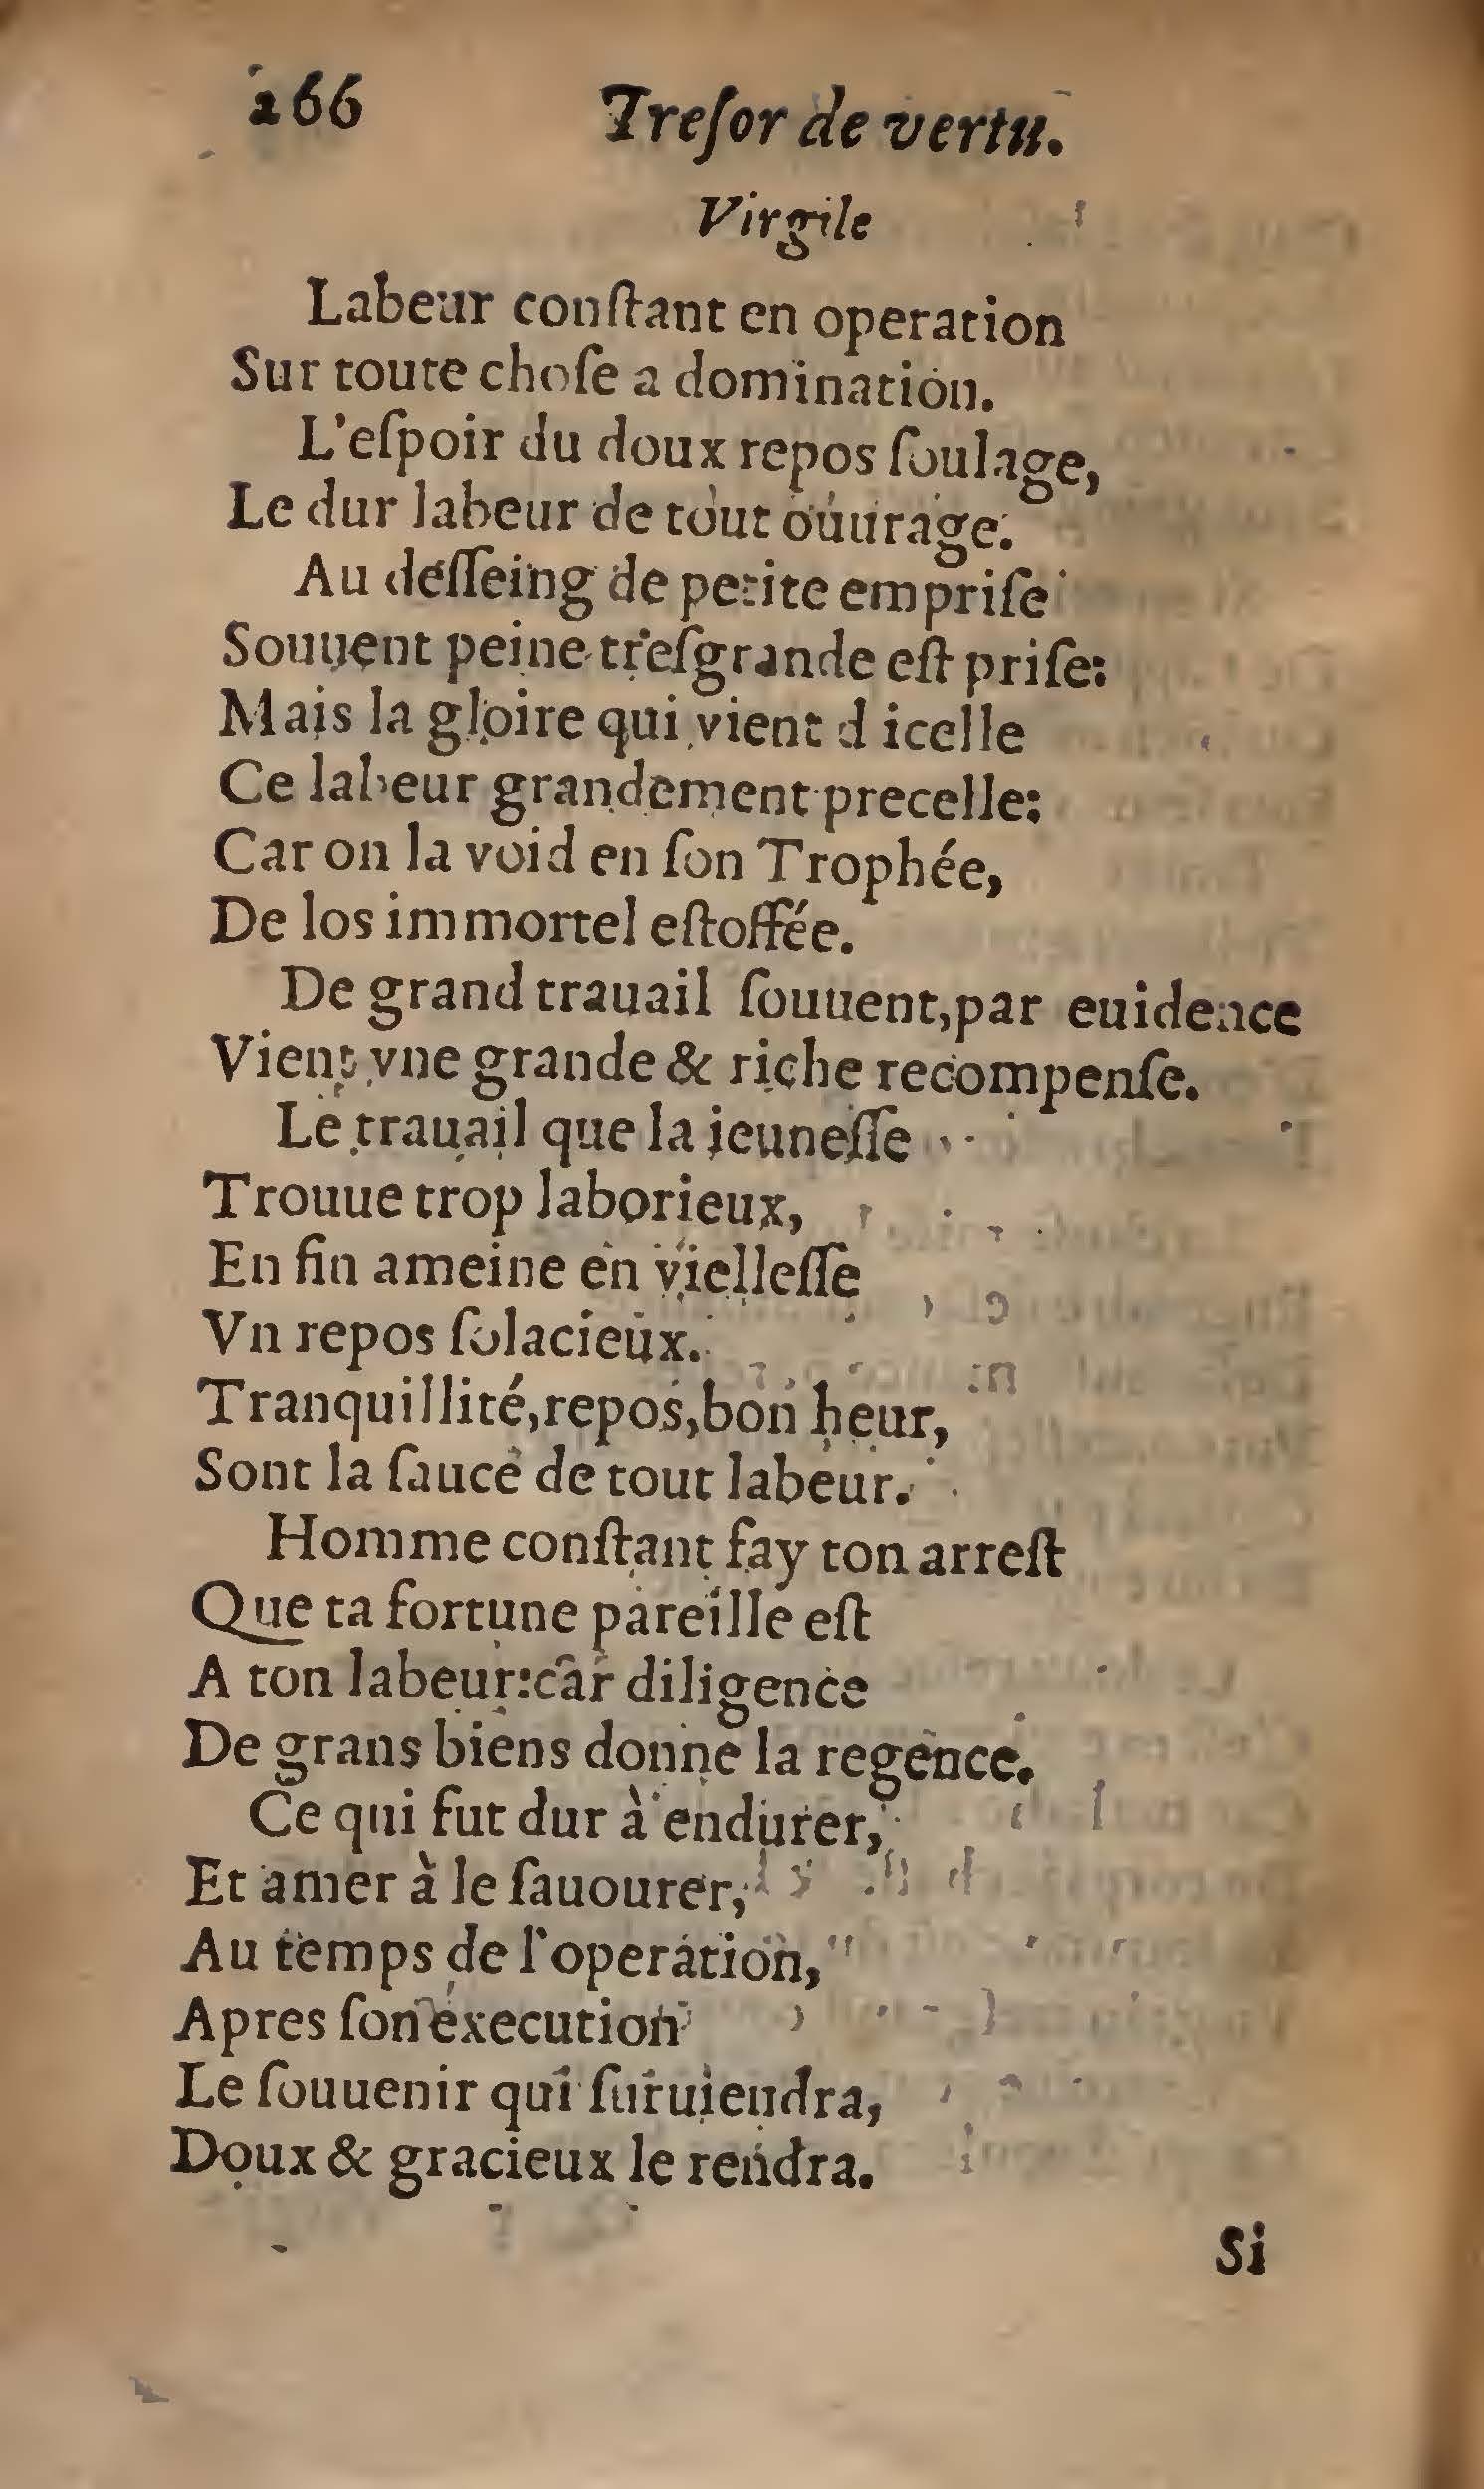 266 Treſor de vertu.
Virgile
Labeur conſtant en operation
Sur toute choſe a domination.
L'eſpoir du doux repos ſoulage,
Le dur labeur de tout ouurage.
Au deſſeing de petite empriſe
Souuent peine treſgrande eſt priſe:
Mais la gloire qui vient d icelle
Ce labeur grandement precelle:
Car on la void en ſon Trophée,
De los immortel eſtoffée.
De grand trauail ſouuent,par euidence
Vient vne grande & riche recompenſe.
Le trauail que la ieuneſſe
Trouue trop laborieux,
En fin ameine en vielleſſe
Vn repos ſolacieux.
Tranquillité,repos,bon heur,
Sont la ſauce de tout labeur.
Homme conſtant fay ton arreſt
Que ta fortune pareille eſt
A ton labeur:car diligence
De grans biens donne la regence.
Ce qui fut dur à endurer,
Et amer à le ſauourer,
Au temps de l'operation,
Apres ſon execution
Le ſouuenir qui ſuruiendra,
Doux & gracieux le rendra.
Si